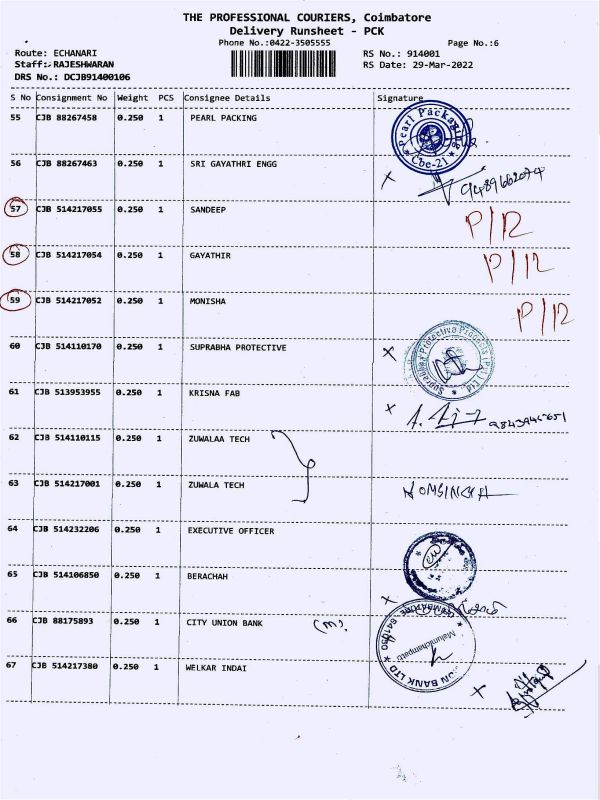 THE PROFESSIONAL COURIERS, Coimbatore
Delivery Runsheet - PCK
Phone No.:0422-3505555 Page No.:6
Route: ECHANARI RS No.: 914001
Staff: RAJESHWARAN RS Date: 29-Mar-2022
DRS No.: DCJB91400106
S No Consignment No Weight PCS Consignee Details Signature
55 CJB 88267458 0.250 1 PEARL PACKING
Pearl Packaging
Cbe-21
56 CJB 88267463 0.250 1 SRI GAYATHRI ENGG
57 CJB 514217055 0.250 1 SANDEEP P/12
58 CJB 514217054 0.250 1 GAYATHIR P/12
59 CJB 514217052 0.250 1 MONISHA P/12
60 CJB 514110170 0.250 1 SUPRABHA PROTECTIVE
Suprabha Protective Products (P) Ltd
61 CJB 513953955 0.250 1 KRISNA FAB
62 CJB 514110115 0.250 1 ZUWALAA TECH
63 CJB 514217001 0.250 1 ZUWALA TECH
64 CJB 514232206 0.250 1 EXECUTIVE OFFICER
65 CJB 514106850 0.250 1 BERACHAH
66 CJB 88175893 0.250 1 CITY UNION BANK (M).
67 CJB 514217380 0.250 1 WELKAR INDAI